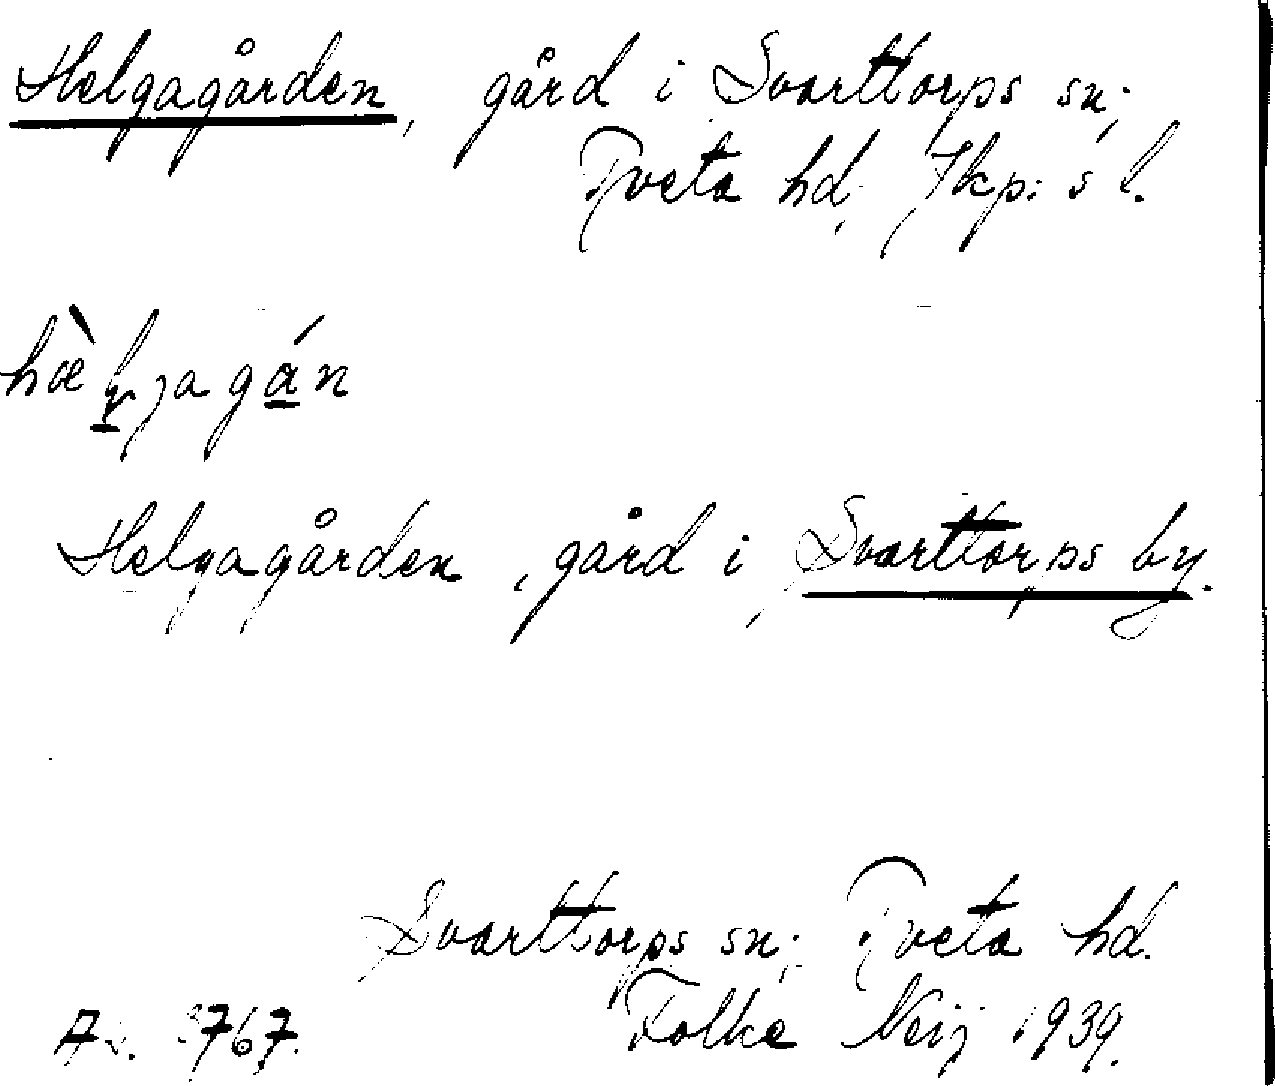 Helgagården, gård i Svarttorps sn;
Tveta hd, Jkp: s l.
Helgagården, gård i, Svarttorps by.
Svarttorps sn; Tveta hd.
767. Folke Neij 1939.